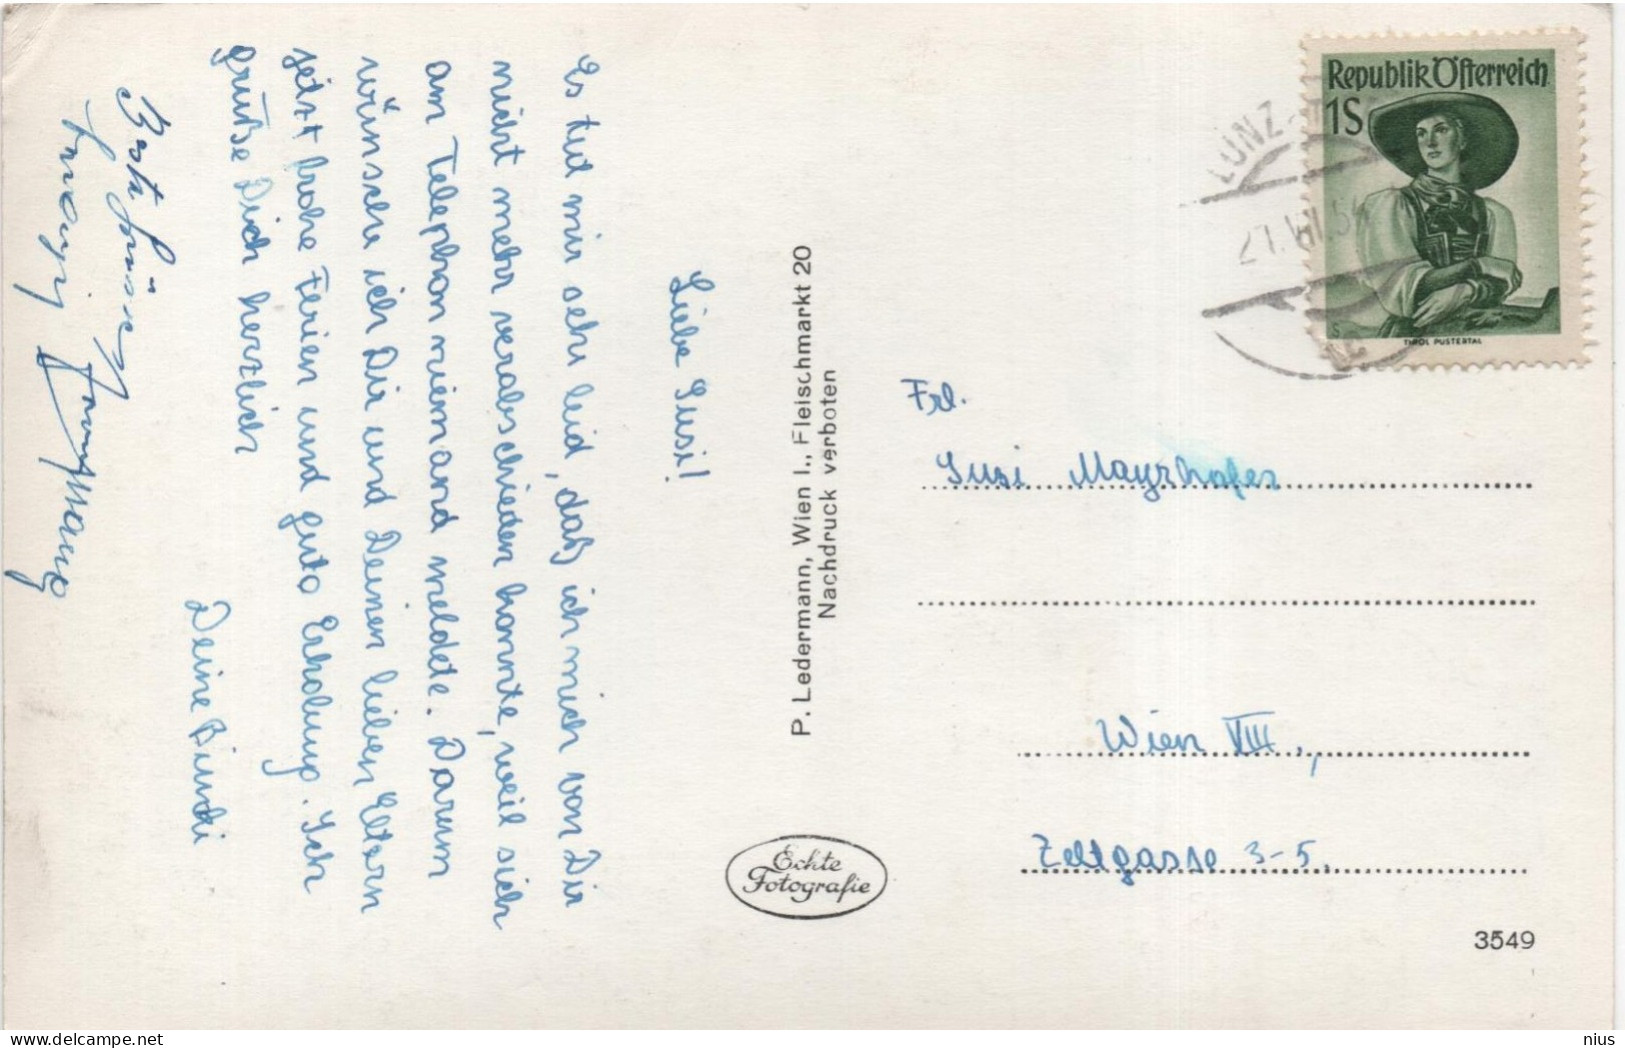 Liebe Susi!
Es tut mir sehr leid, daß ich mich von Dir
nicht mehr verabschieden konnte, weil sich
am Telephon niemand meldete. Darum
wünsche ich Dir und Deinen lieben Eltern
jetzt frohe Ferien und gute Erholung. Ich
grüße Dich herzlich
Deine
Beste Grüße
P. Ledermann, Wien I., Fleischmarkt 20
Nachdruck verboten
Echte
Fotografie
Republik Österreich
1S
TIROL PUSTERTAL
LUNZ
Frl.
Susi Mayrhofer
Wien VIII.,
Zeltgasse 3-5.
3549
nius